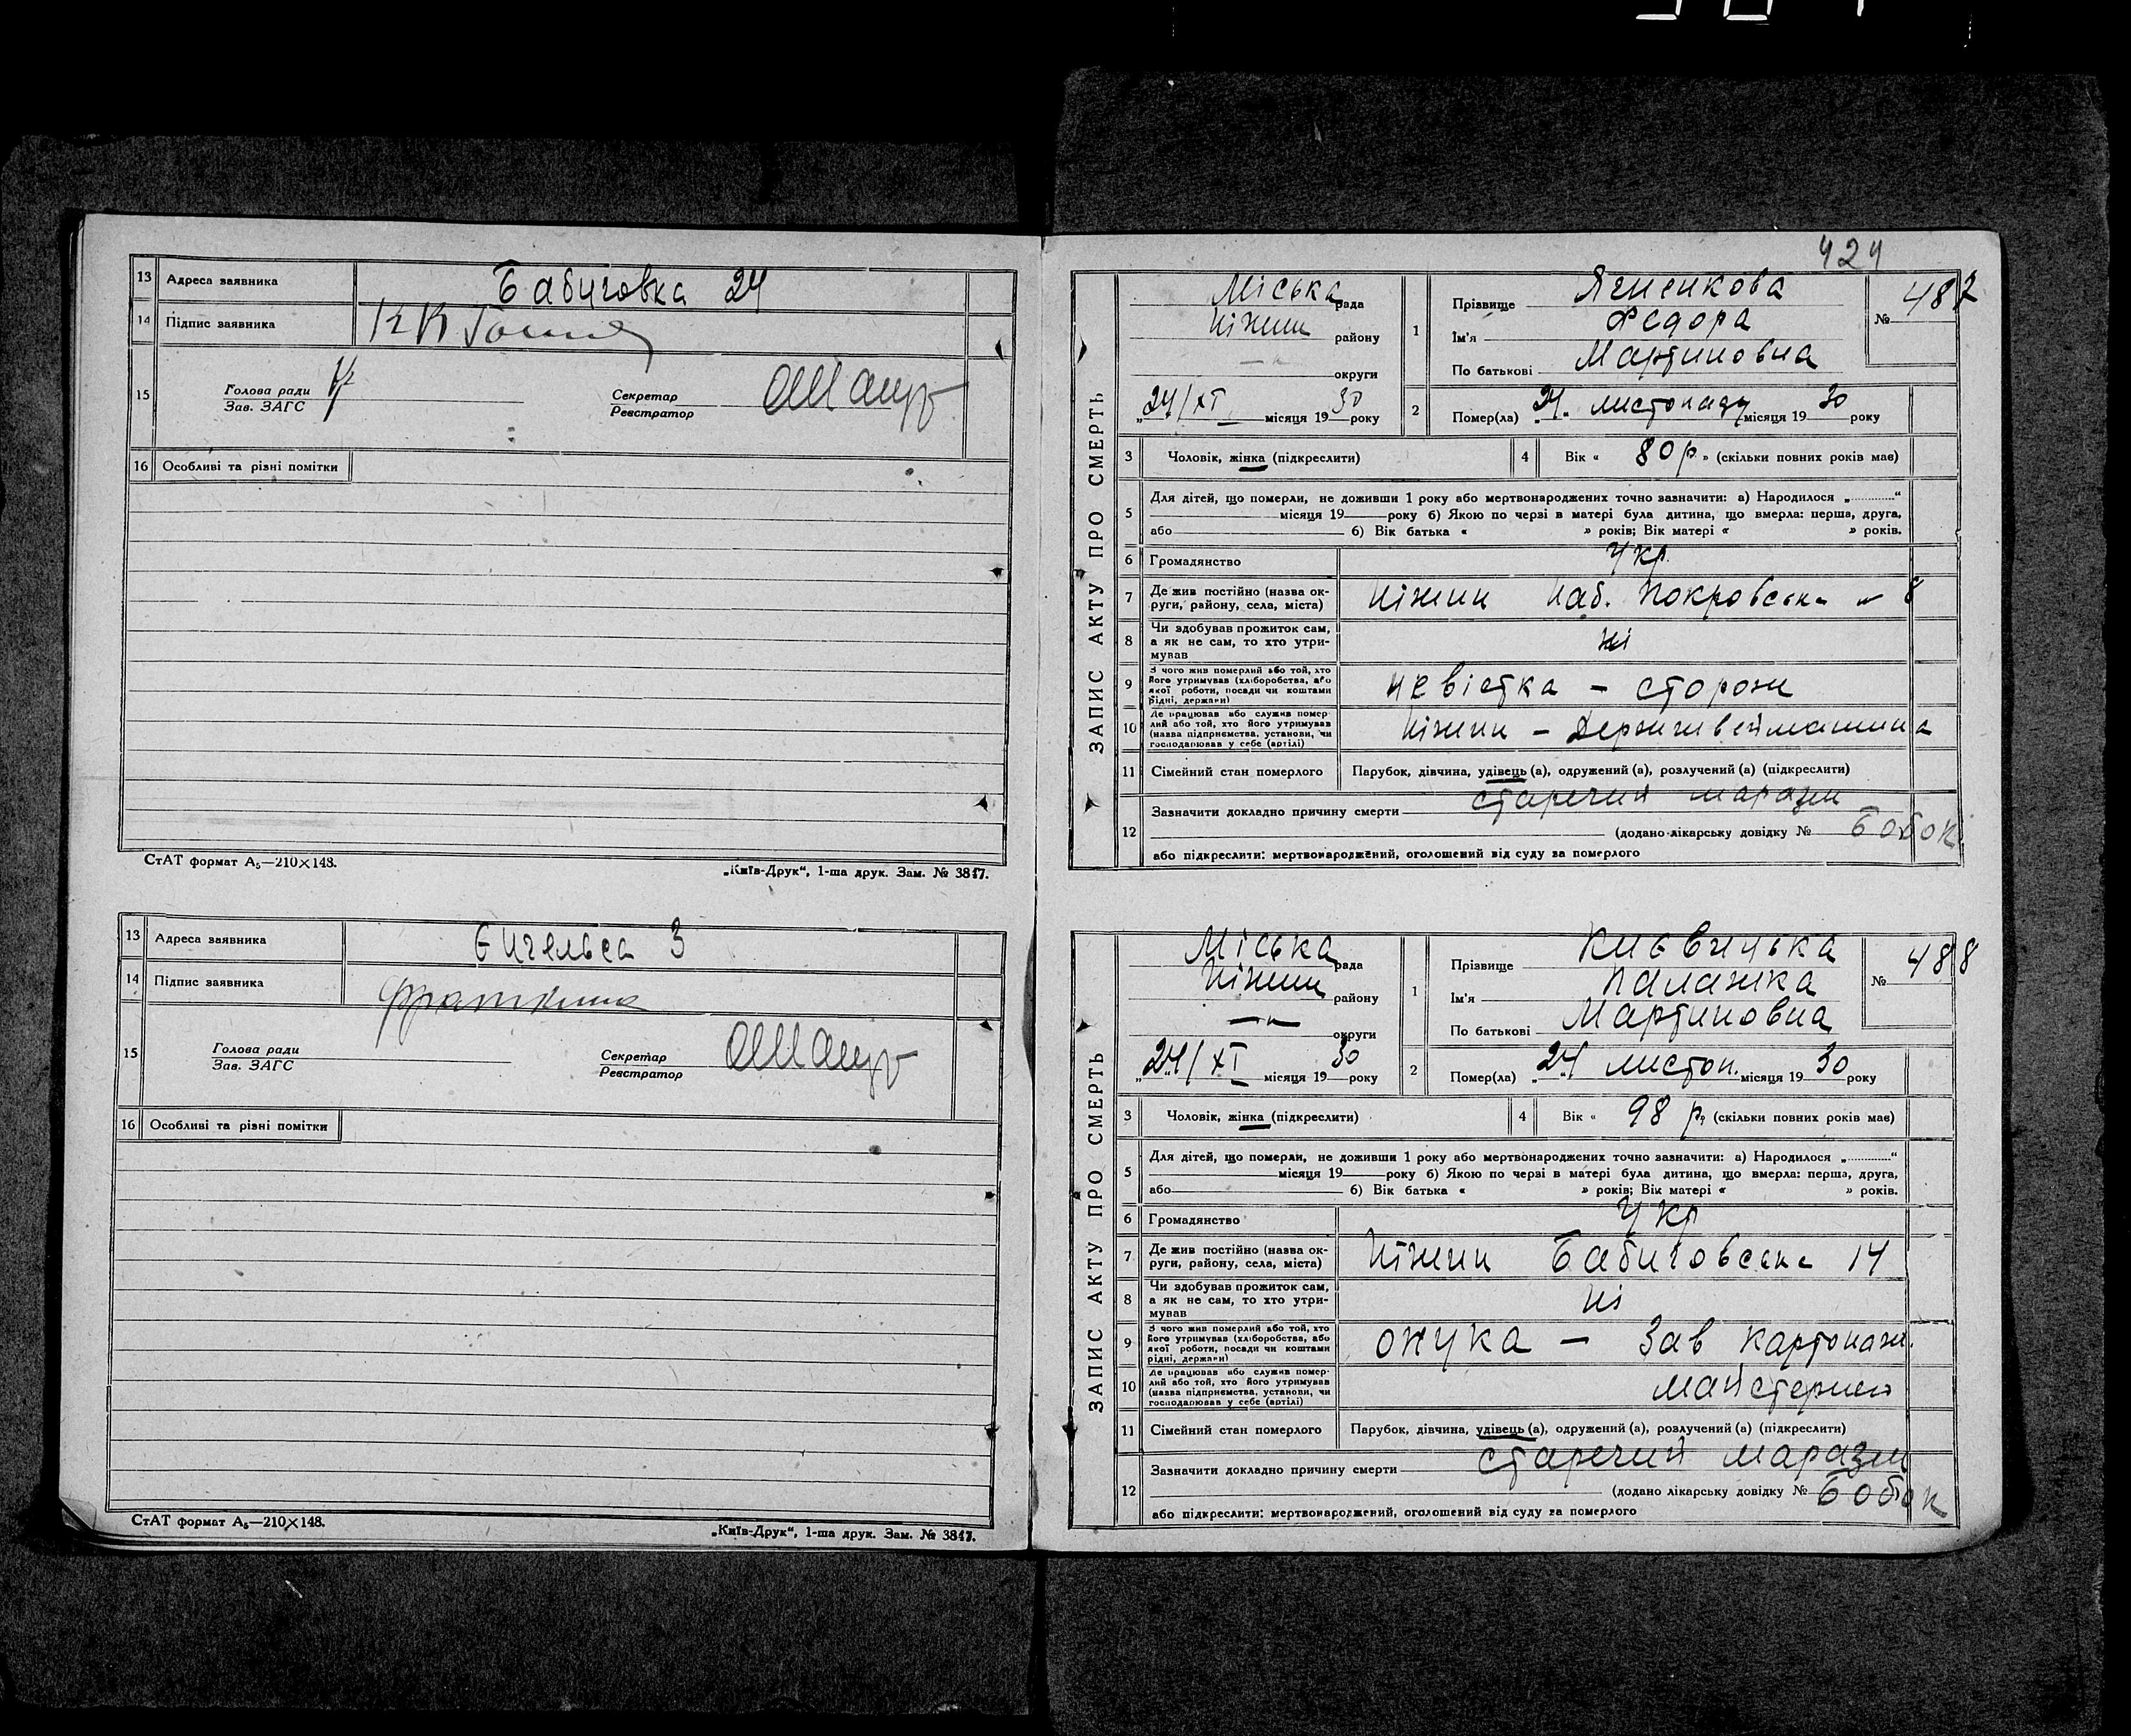 13 Адреса заявника Бабичовка 24
14 Підпис заявника
15 Голова ради
Зав. ЗАГС
Секретар
Реєстратор
16 Особливі та різні помітки
СтАТ формат А₅—210×148.
„Київ-Друк“, 1-ша друк. Зам. № 3847.
13 Адреса заявника Енгельса 3
14 Підпис заявника
15 Голова ради
Зав. ЗАГС
Секретар
Реєстратор
16 Особливі та різні помітки
СтАТ формат А₅—210×148.
„Київ-Друк“, 1-ша друк. Зам. № 3847.
424
ЗАПИС АКТУ ПРО СМЕРТЬ
Міська рада
Ніжин району
—„— округи
„24/XI місяця 1930 року
1 Прізвище
Ім'я Федора
По батькові Мартиновна
№ 487
2 Помер(ла) „24“ листопаду місяця 1930 року
3 Чоловік, жінка (підкреслити)
4 Вік « 80 р. » (скільки повних років має)
5 Для дітей, що померли, не доживши 1 року або мертвонароджених точно зазначити: а) Народилося „............“
місяця 19 року б) Якою по черзі в матері була дитина, що вмерла: перша, друга,
або б) Вік батька « » років; Вік матері « » років.
6 Громадянство Укр.
7 Де жив постійно (назва ок-
руги, району, села, міста) Ніжин Наб. Покровська 8
8 Чи здобував прожиток сам,
а як не сам, то хто утри-
мував ні
9 З чого жив померлий або той, хто
його утримував (хліборобства, або
якої роботи, посади чи коштами
рідні, держави) невістка – сторож
10 Де працював або служив помер-
лий або той, хто його утримував
(назва підприємства, установи, чи
господарював у себе (артілі) Ніжин – Держшвеймашина
11 Сімейний стан померлого Парубок, дівчина, удівець (а), одружений (а), розлучений (а) (підкреслити)
12 Зазначити докладно причину смерти старечий маразм
(додано лікарську довідку № Бобок
або підкреслити: мертвонароджений, оголошений від суду за померлого
ЗАПИС АКТУ ПРО СМЕРТЬ
Міська рада
Ніжин району
—„— округи
„24/XI місяця 1930 року
1 Прізвище
Ім'я Палажка
По батькові Мартиновна
№ 488
2 Помер(ла) „24“ листоп. місяця 1930 року
3 Чоловік, жінка (підкреслити)
4 Вік « 98 р. » (скільки повних років має)
5 Для дітей, що померли, не доживши 1 року або мертвонароджених точно зазначити: а) Народилося „............“
місяця 19 року б) Якою по черзі в матері була дитина, що вмерла: перша, друга,
або б) Вік батька « » років; Вік матері « » років.
6 Громадянство Укр
7 Де жив постійно (назва ок-
руги, району, села, міста) Ніжин Бабичовська 14
8 Чи здобував прожиток сам,
а як не сам, то хто утри-
мував ні
9 З чого жив померлий або той, хто
його утримував (хліборобства, або
якої роботи, посади чи коштами
рідні, держави) онука – Зав картонаж.
10 Де працював або служив помер-
лий або той, хто його утримував
(назва підприємства, установи, чи
господарював у себе (артілі) майстернею
11 Сімейний стан померлого Парубок, дівчина, удівець (а), одружений (а), розлучений (а) (підкреслити)
12 Зазначити докладно причину смерти старечий маразм
(додано лікарську довідку № Бобок
або підкреслити: мертвонароджений, оголошений від суду за померлого